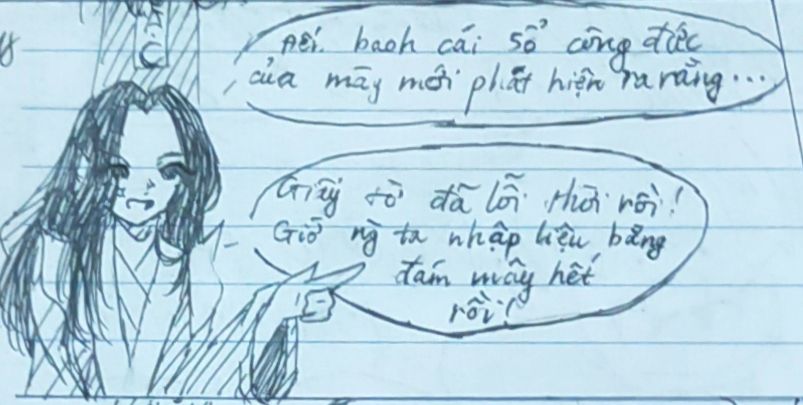 bạch cái sổ công đức
của mày mới phát hiện ra rằng...
Giấy tờ đã lỗi thời rồi!
Giờ ng ta nhập liệu bằng
đám mây hết
rồi!